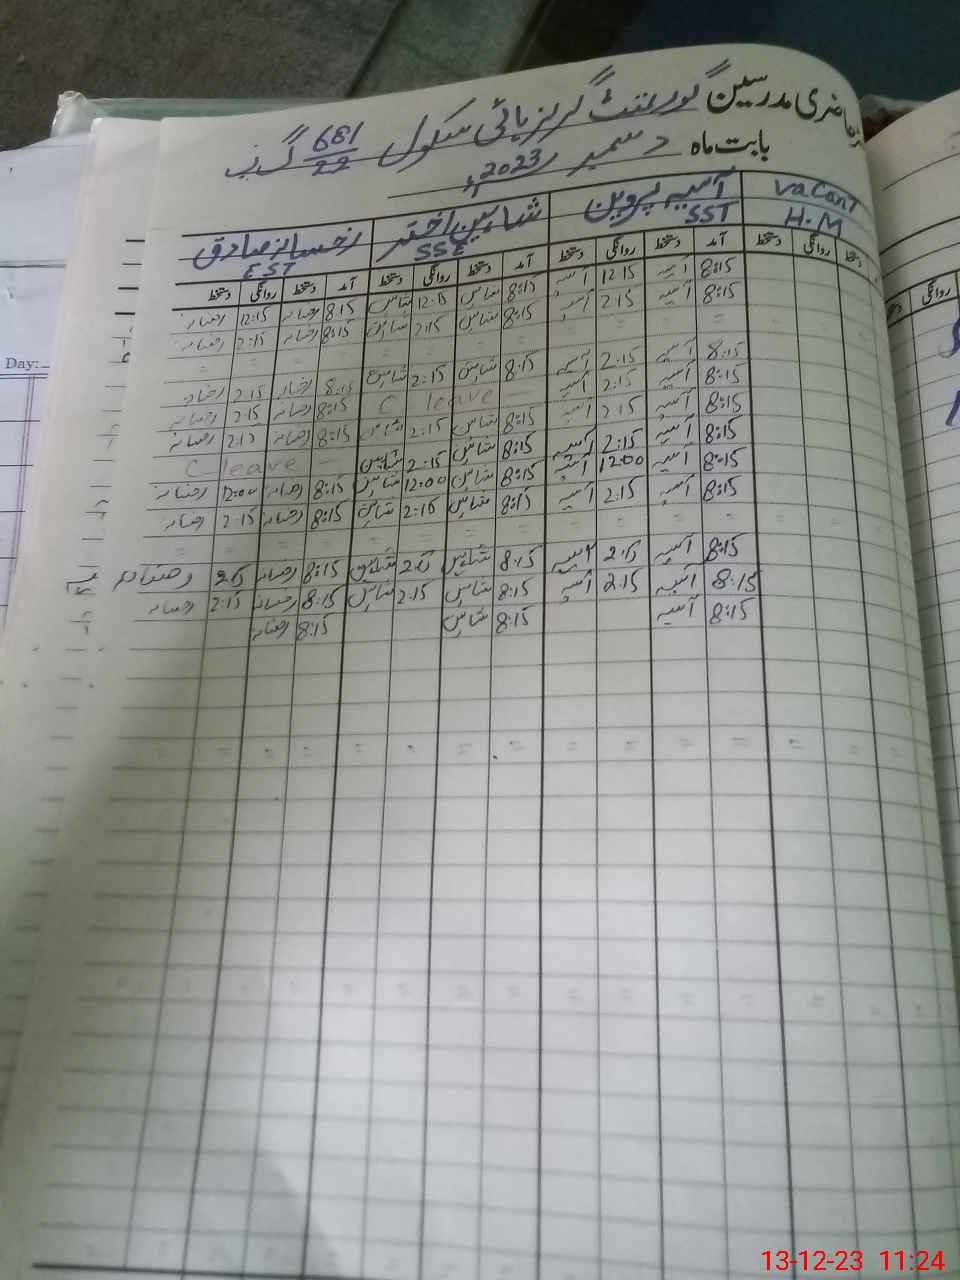 حاضری مدرسین گورنمنٹ گرلز ہائی سکول 681/22 گ ب
بابت ماہ دسمبر 2023ء
Vacant آسیہ پروین شاہین اختر رخسانہ صادق
H.M SST SSE EST
آمد دستخط روانگی دستخط آمد دستخط روانگی دستخط آمد دستخط روانگی دستخط
8:15 آسیہ 12:15 آسیہ 8:15 شاہین 12:15 شاہین 8:15 رخسانہ 12:15 رخسانہ
8:15 آسیہ 2:15 آسیہ 8:15 شاہین 2:15 شاہین 8:15 رخسانہ 2:15 رخسانہ
= = = = = = = = = = = =
8:15 آسیہ 2:15 آسیہ 8:15 شاہین 2:15 شاہین 8:15 رخسانہ 2:15 رخسانہ
8:15 آسیہ 2:15 آسیہ C leave 8:15 رخسانہ 2:15 رخسانہ
8:15 آسیہ 2:15 آسیہ 8:15 شاہین 2:15 شاہین 8:15 رخسانہ 2:15 رخسانہ
8:15 آسیہ 2:15 آسیہ 8:15 شاہین 2:15 شاہین C leave
8:15 آسیہ 12:00 آسیہ 8:15 شاہین 12:00 شاہین 8:15 رخسانہ 12:00 رخسانہ
8:15 آسیہ 2:15 آسیہ 8:15 شاہین 2:15 شاہین 8:15 رخسانہ 2:15 رخسانہ
= = = = = = = = = = = =
8:15 آسیہ 2:15 آسیہ 8:15 شاہین 2:15 شاہین 8:15 رخسانہ 2:15 رخسانہ
8:15 آسیہ 2:15 آسیہ 8:15 شاہین 2:15 شاہین 8:15 رخسانہ 2:15 رخسانہ
8:15 آسیہ 8:15 شاہین 8:15 رخسانہ
روانگی
Day:
13-12-23 11:24